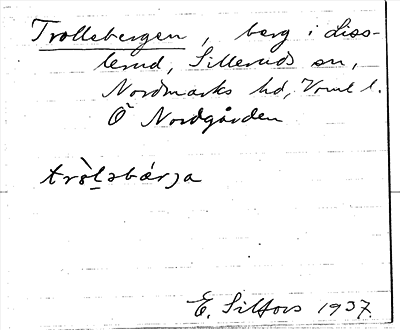 Trollebergen, berg i Liss-
lerud, Silleruds sn,
Nordmarks hd, Vrml l.
Ö Nordgården
trò̀l̠əbǽrja
E. Silfors 1937